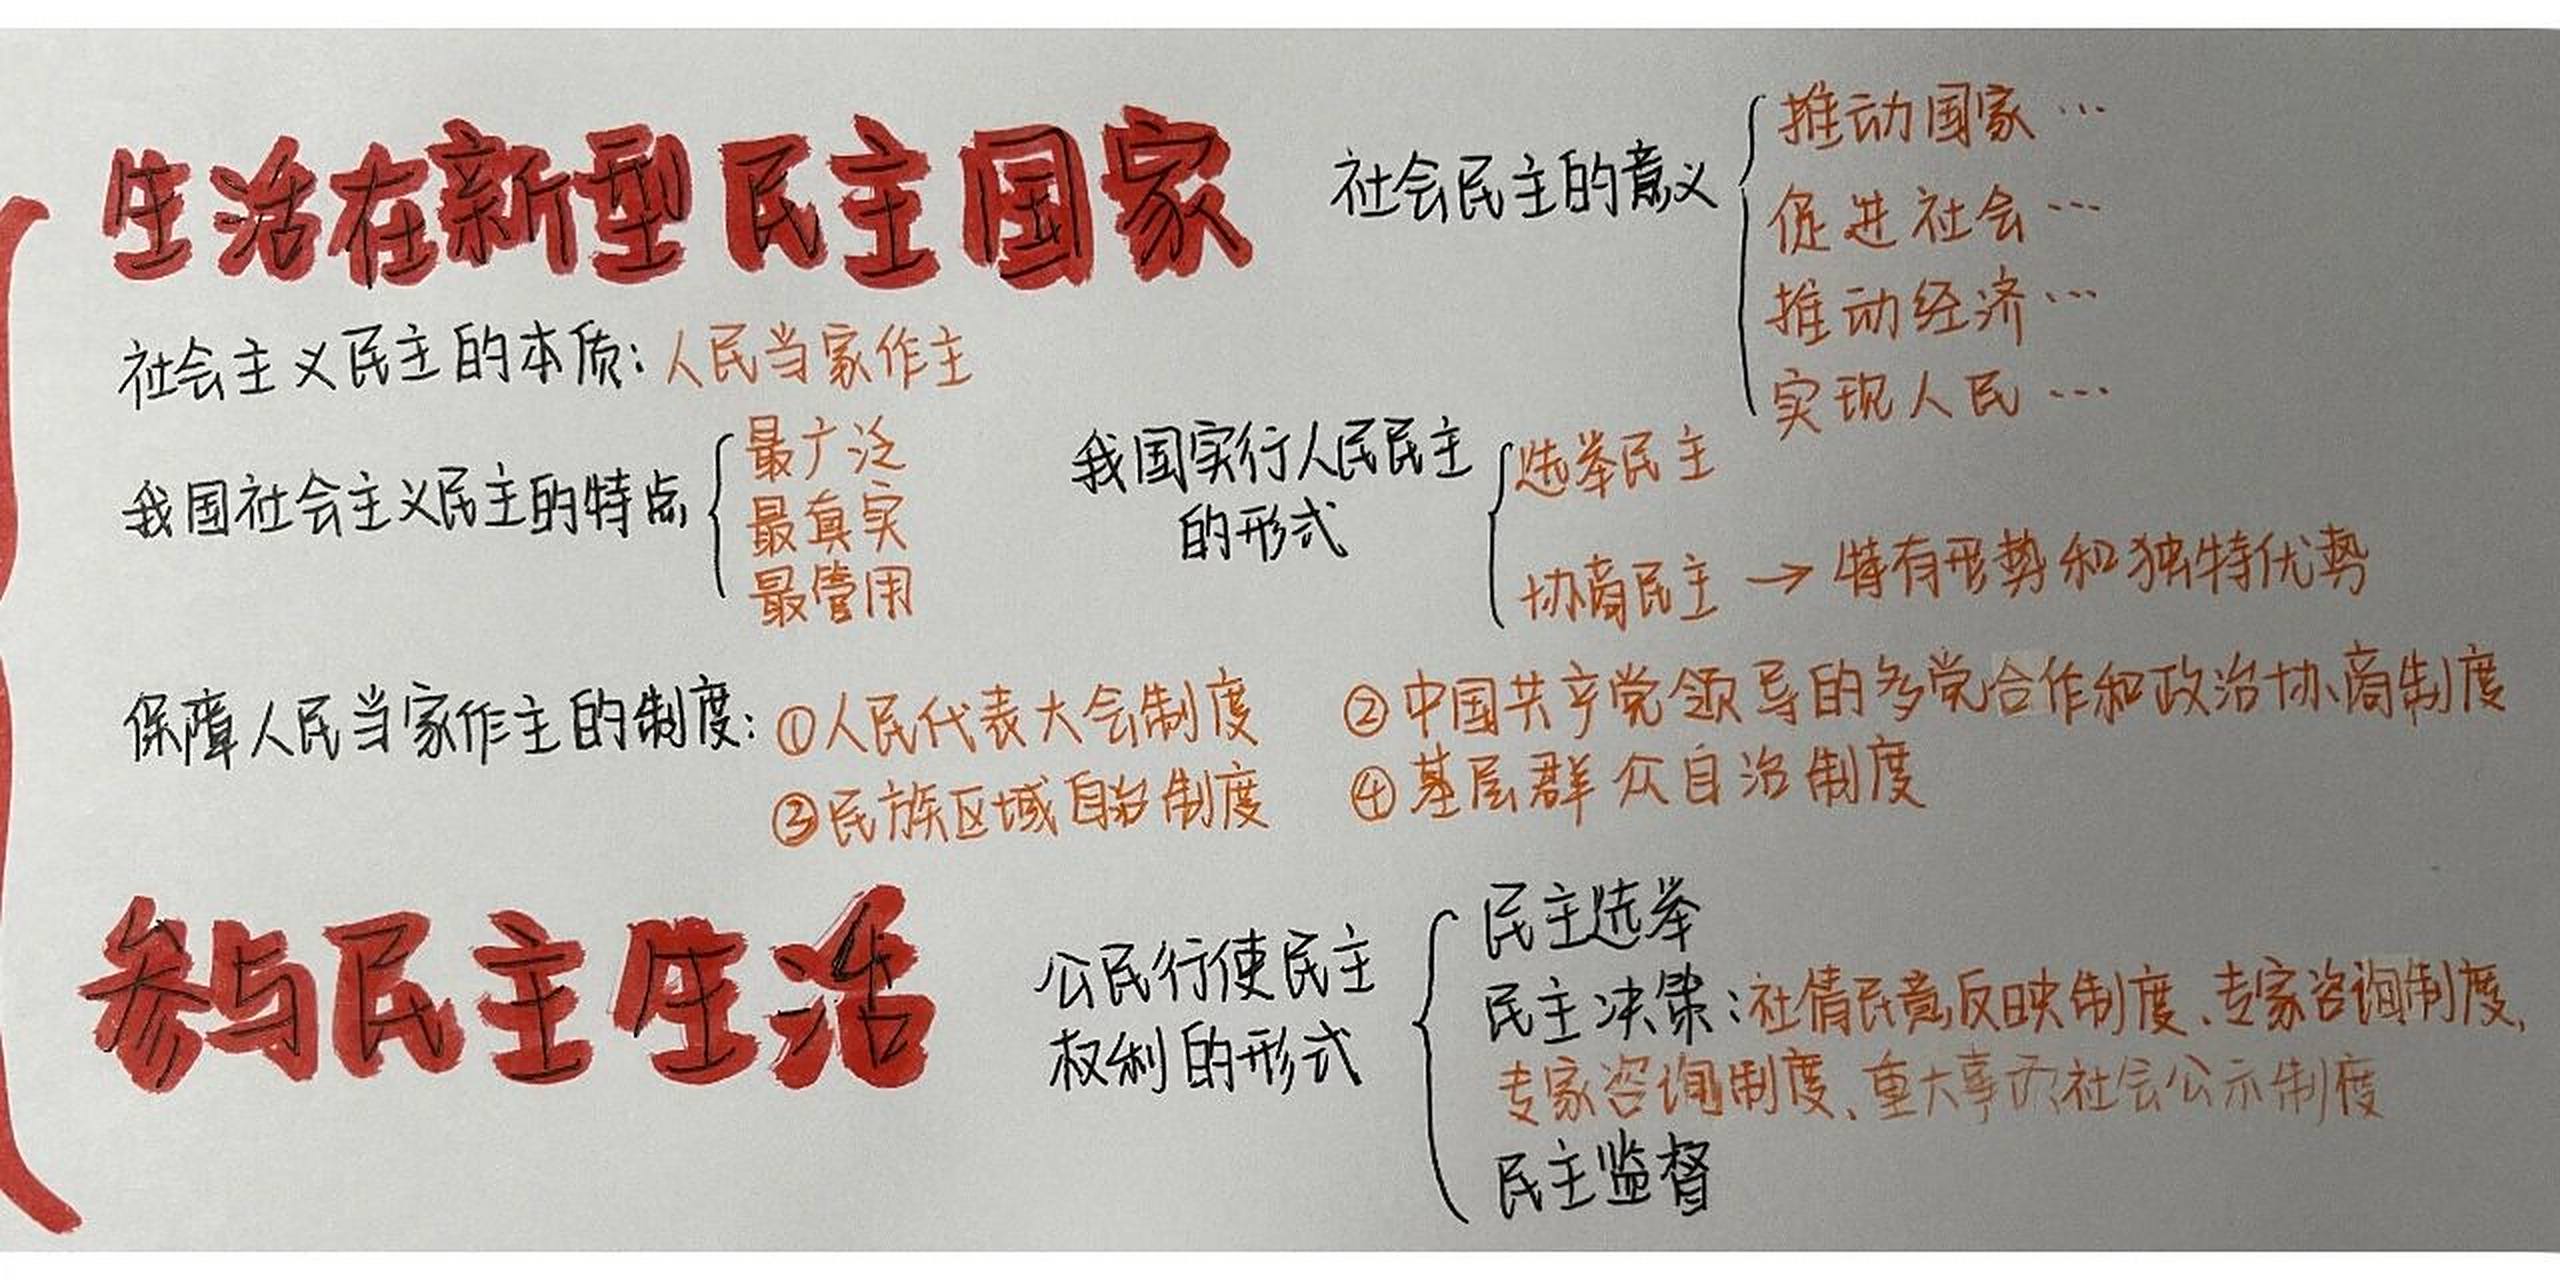 生活在新型民主国家
社会民主的意义
推动国家…
促进社会…
推动经济…
实现人民…
社会主义民主的本质：人民当家作主
我国社会主义民主的特点
最广泛
最真实
最管用
我国实行人民民主
的形式
选举民主
协商民主→特有形势和独特优势
保障人民当家作主的制度：①人民代表大会制度 ②中国共产党领导的多党合作和政治协商制度
③民族区域自治制度 ④基层群众自治制度
参与民主生活
公民行使民主
权利的形式
民主选举
民主决策：社情民意反映制度、专家咨询制度、
专家咨询制度、重大事项社会公示制度
民主监督